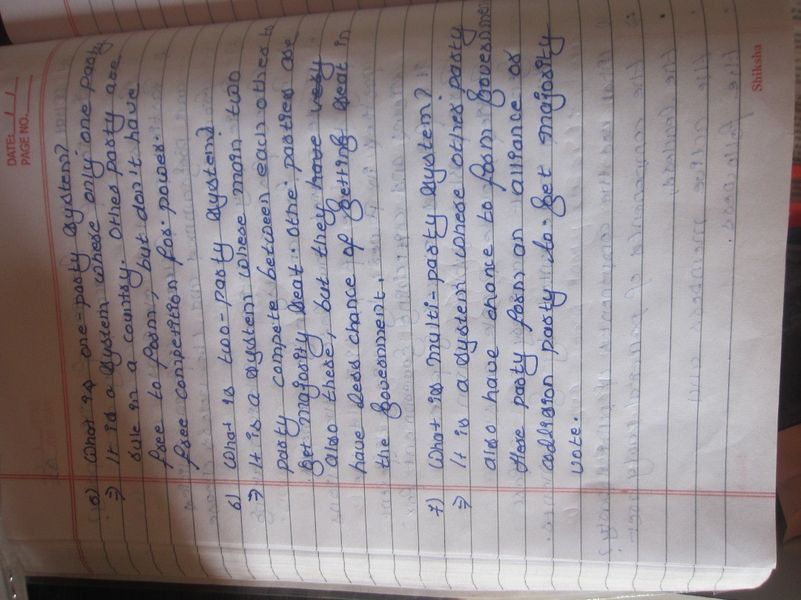 DATE: / /
PAGE NO.
What is one-party system?
⇒ It is a system where only one party
rule in a country. Other party are
free to form, but don't have
free competition for power.
6) What is two-party system?
⇒ It is a system where main two
party compete between each other to
get majority seat. othe. parties are
also there, but they have very
have less chance of getting seat in
the government.
7) What is multi-party system?
⇒ It is a system where other party
also have chance to form Governmen
party form an alliance or
party to get majority
vote.
Shiksha